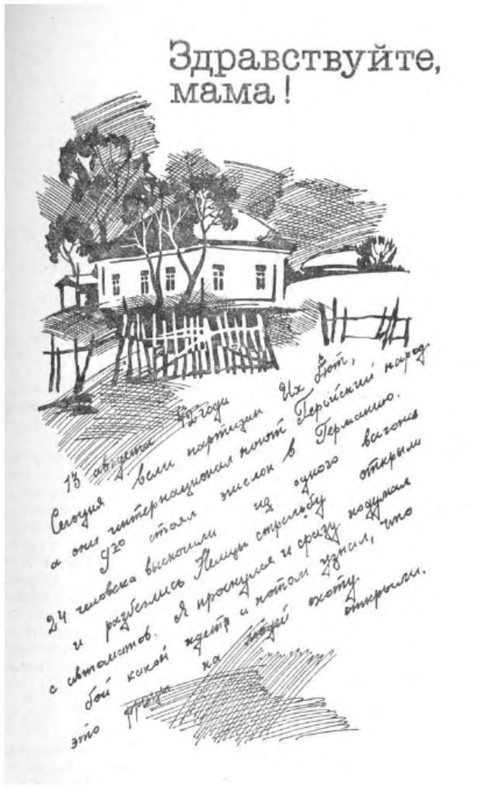 Здравствуйте,
мама!
13 августа 42 года
Сегодня вели партизан Их бьют,
а они интернационал поют Геройский народ
уго стали жислок в Германию.
24 человека выскочили из одного вагона
и разбежлись Немцы стрельбу открыли
с автоматов. Я проснулся и сразу подумал
бой какой идетр и потом узнал, что
это фрицы на людей охоту открыли.